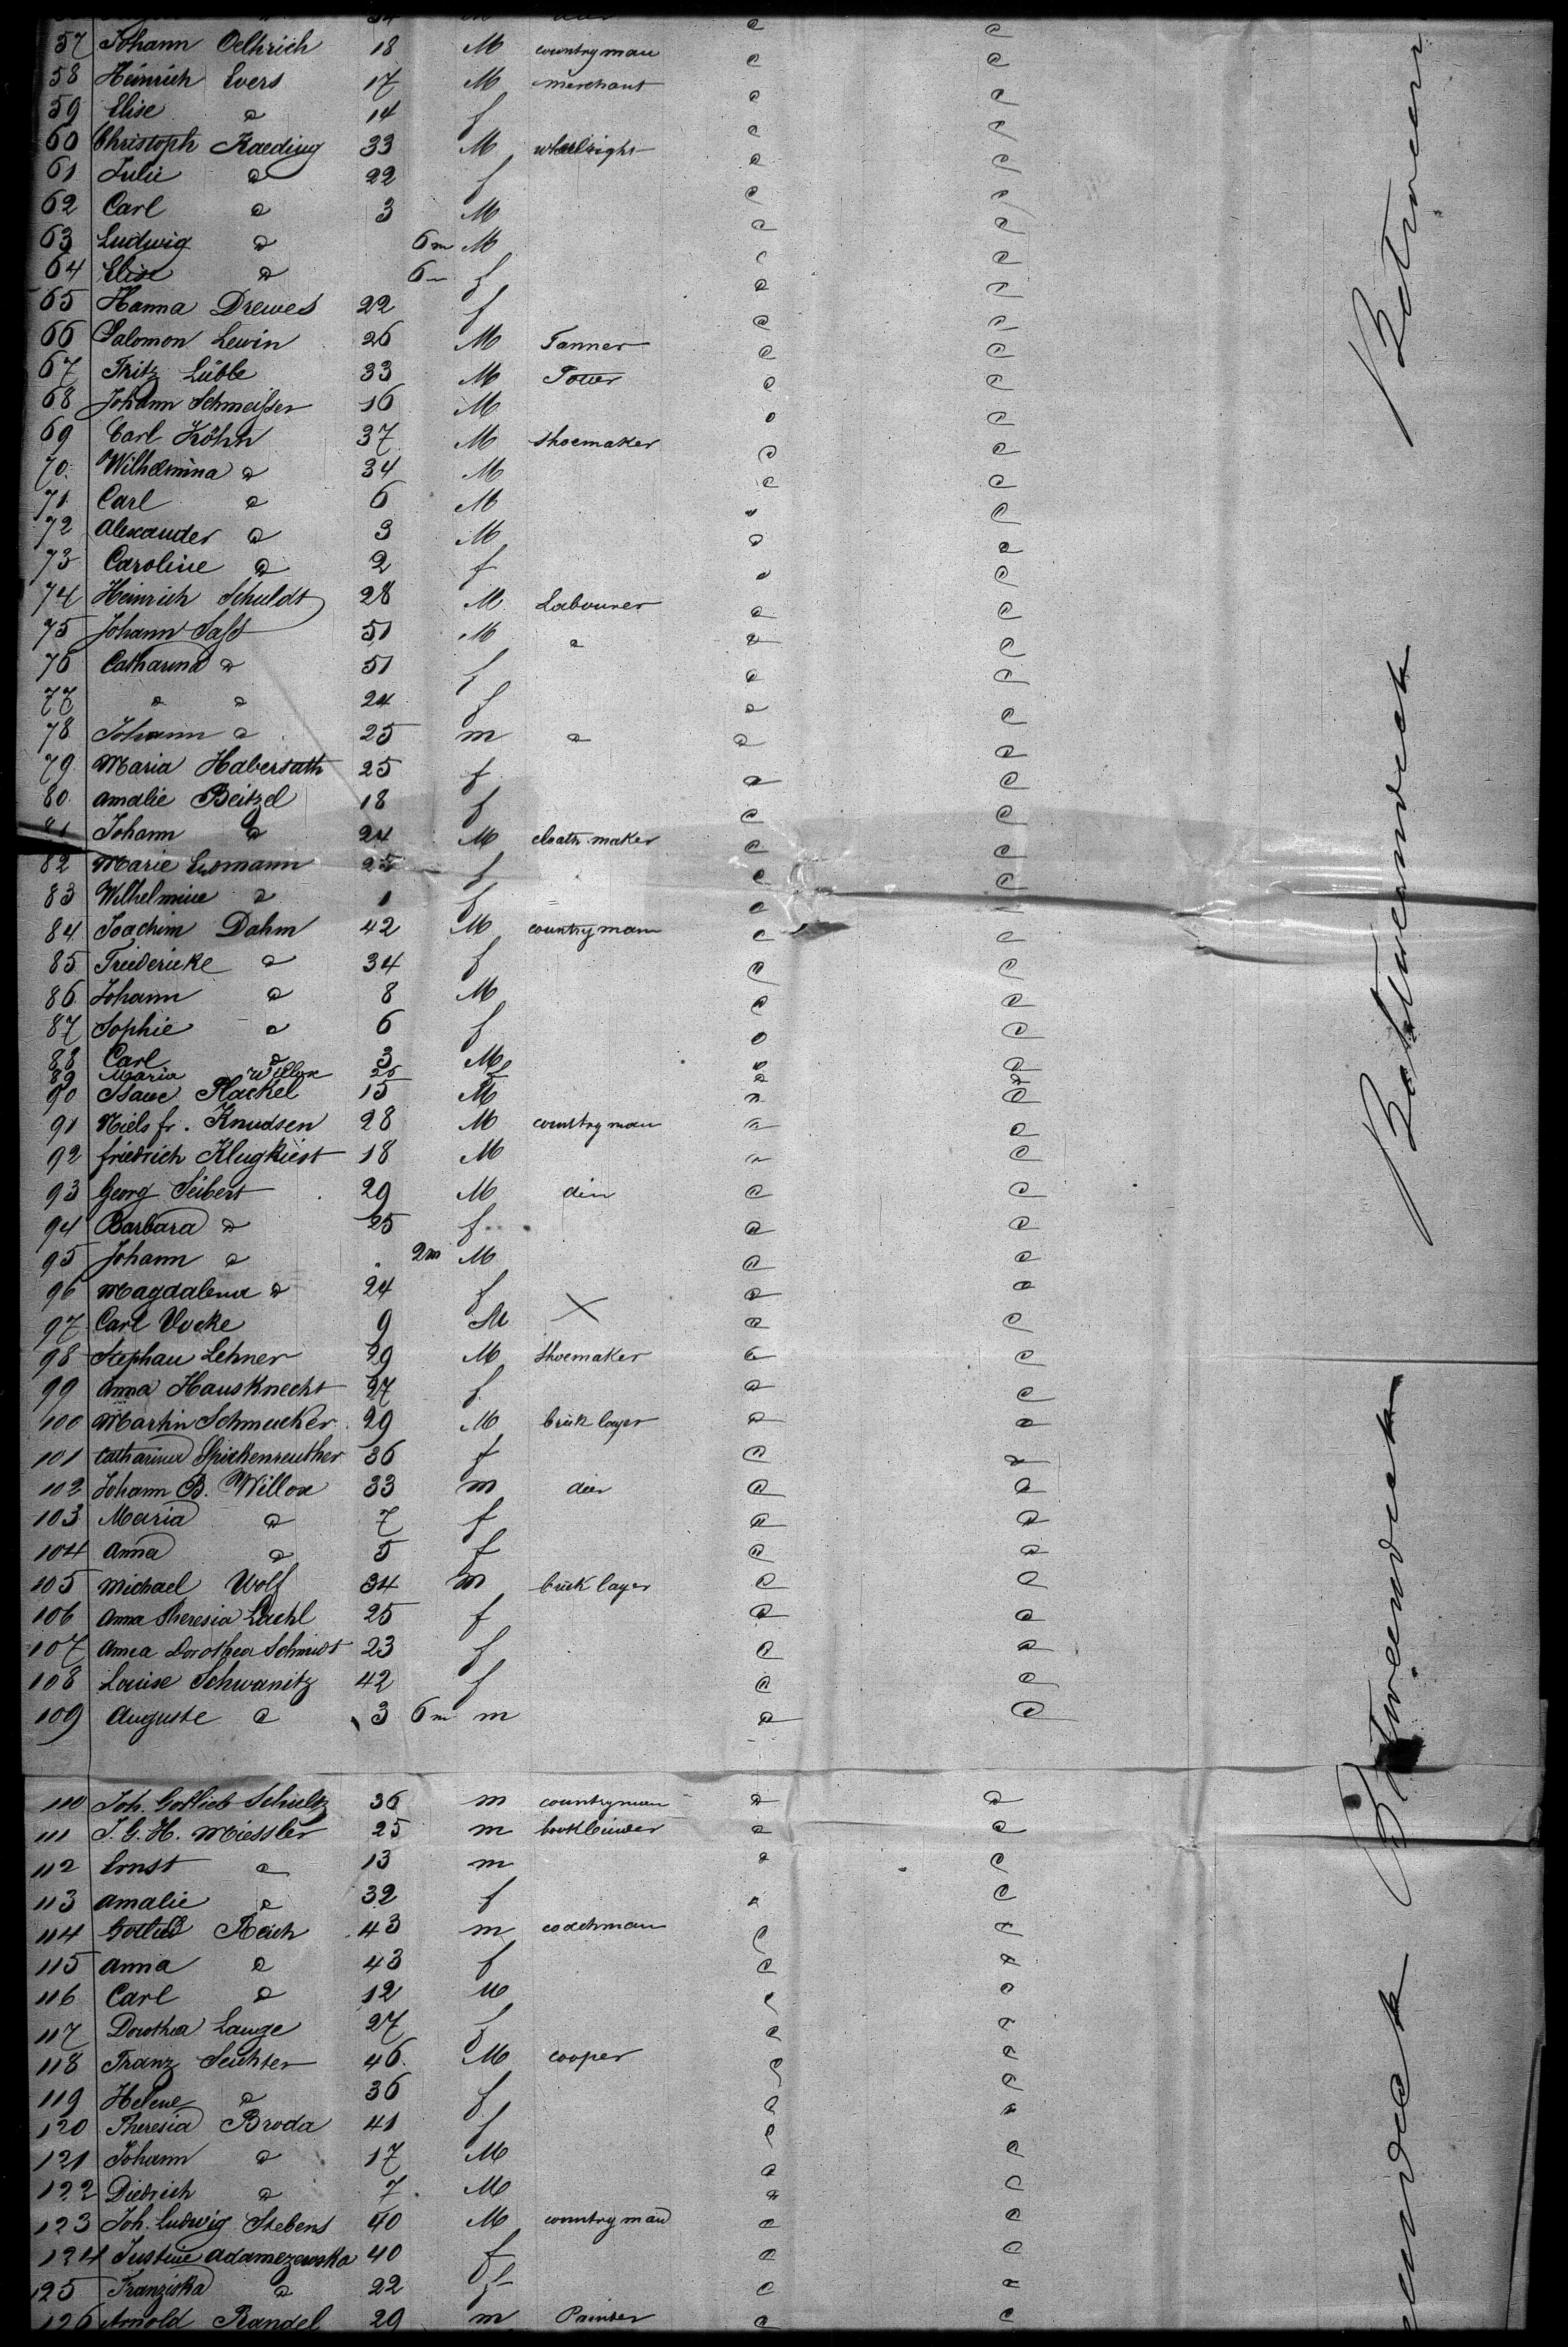 57 Johann Oelhrich 18 M countryman
58 Heinrich Evers 17 M merchant
59 Elise " 14 f
60 Christoph Kaeding 33 M wheelright
61 Julie " 22 f
62 Carl " 3 M
63 Ludwig " 6m M
64 Elise " 6m f
65 Hanna Drewes 22 f
66 Salomon Lewin 26 M Tanner
67 Fritz Lübbe 33 M
68 Johann Schmeisser 16 M
69 Carl Köhn 37 M shoemaker
70 Wilhelmina " 34 M
71 Carl " 6 M
72 Alexander " 3 M
73 Caroline " 2 f
74 Heinrich Schuldt 28 M Labourer
75 Johann Sass 51 M "
76 Catharina " 51 f
77 " " 24 f
78 Johann " 25 m "
79 Maria Habersath 25 f
80 Amalie Beitzel 18 f
81 Johann " 24 M cloath maker
82 Marie 25 f
83 Wilhelmine " 1 f
84 Joachim Dahm 42 M countryman
85 Friedericke " 34 f
86 Johann " 8 M
87 Sophie " 6 f
88 Carl " 3 M
89 Maria Willox 26 f
90 Isaac Plackel 15 M
91 Niels fr. Knudsen 28 M countryman
92 friedrich Klugkiest 18 M
93 Georg Seibert 29 M
94 Barbara " 25 f
95 Johann " 2m M
96 Magdalena " 24 f
97 Carl Vocke 9 M X
98 Stephan Lehner 29 M shoemaker
99 Anna Hausknecht 27 f
100 Martin Schmucker 29 M brick layer
101 Catharina Spickenreuther 36 f
102 Johann B. Willox 33 m
103 Maria " 7 f
104 Anna " 5 f
105 Michael Wolf 34 m brick layer
106 Anna Theresia 25 f
107 Anna Dorothea Schmidt 23 f
108 Louise Schwanitz 42 f
109 Auguste " 3 6m m
110 Joh. Gottlieb Schultz 36 m countryman
111 J. G. H. Miessler 25 m bookbinder
112 Ernst " 13 m
113 Amalie " 32 f
114 Gottlieb Reich 43 m coachman
115 Anna " 43 f
116 Carl " 12 M
117 Dorothea Lange 27 f
118 Franz 46 M cooper
119 Helene " 36 f
120 Theresia Broda 41 f
121 Johann " 17 M
122 Diedrich " 7 M
123 Joh. Ludwig Stebens 40 M countryman
124 Justine Adamezewska 40 f
125 Franziska " 22 f
126 Arnold Randel 29 m Painter
Between
Betweendeck
Betweendeck